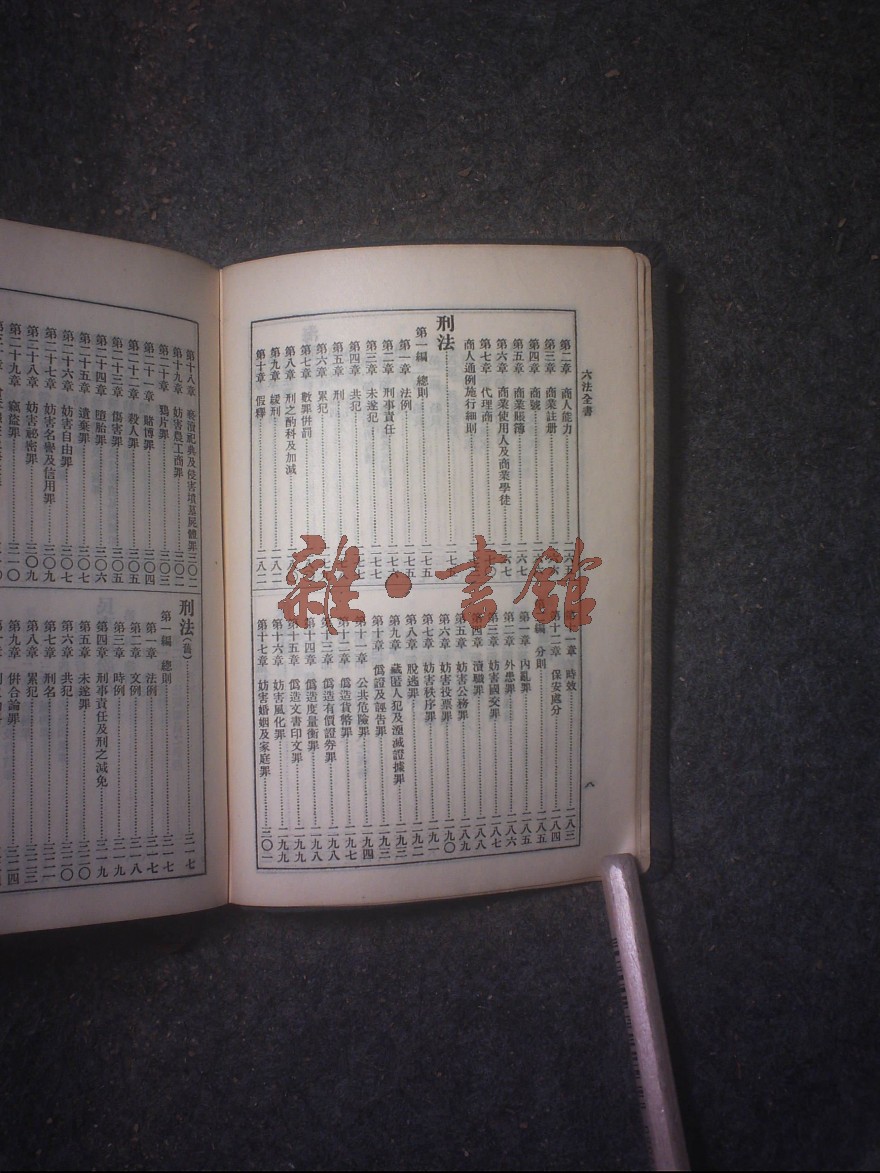 六法全書
第二章 商人能力
第三章 商業註冊
第四章 商號
第五章 商業賬簿
第六章 商業使用人及商業學徒
第七章 代理商
商人通例施行細則
刑法
第一編 總則
第一章 法例 一七五
第二章 刑事責任
第三章 未遂犯 一七七
第四章 共犯
第五章 刑
第六章 累犯
第七章 數罪併罰
第八章 刑之酌科及加減
第九章 緩刑 一八二
第十章 假釋 一八二
章 時效 一八三
第十二章 保安處分 一八四
編 分則 一八五
第一章 內亂罪 一八五
第二章 外患罪 一八六
第三章 妨害國交罪 一八七
第四章 瀆職罪 一八八
第五章 妨害公務罪 一八九
第六章 妨害投票罪 一九〇
第七章 妨害秩序罪 一九一
第八章 脫逃罪 一九二
第九章 藏匿人犯及湮滅證據罪 一九三
第十章 僞證及誣告罪 一九三
第十一章 公共危險罪 一九四
第十二章 僞造貨幣罪 一九七
第十三章 僞造有價證券罪 一九八
第十四章 僞造度量衡罪 一九八
第十五章 僞造文書印文罪 一九九
第十六章 妨害風化罪 一九九
第十七章 妨害婚姻及家庭罪 二〇一
八
第十八章 褻瀆祀典及侵害墳墓屍體罪 二〇二
第十九章 妨害農工商罪 二〇二
第二十章 鴉片罪 二〇三
第二十一章 賭博罪 二〇四
第二十二章 殺人罪 二〇五
第二十三章 傷害罪 二〇五
第二十四章 墮胎罪 二〇六
第二十五章 遺棄罪 二〇七
第二十六章 妨害自由罪 二〇七
第二十七章 妨害名譽及信用罪 二〇八
第二十八章 妨害秘密罪 二〇九
第二十九章 竊盜罪 二一〇
刑法(舊) 二一七
第一編 總則 二一七
第一章 法例 二一七
第二章 文例 二一八
第三章 時例 二一九
第四章 刑事責任及刑之減免 二一九
第五章 未遂罪 二二〇
第六章 共犯 二二〇
第七章 刑名 二二一
第八章 累犯 二二三
第九章 併合論罪 二二四
雜·書館